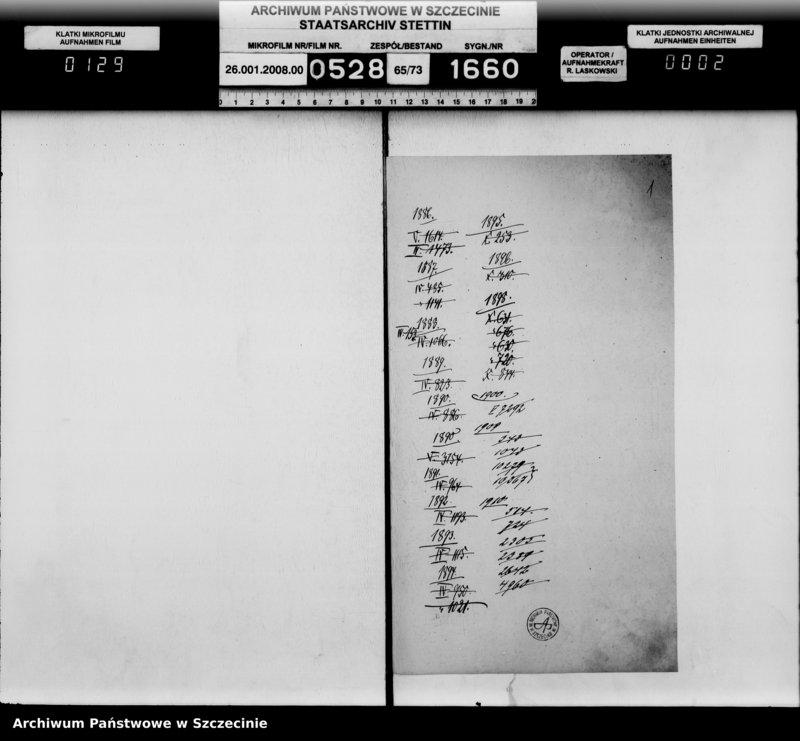 ARCHIWUM PAŃSTWOWE W SZCZECINIE
STAATSARCHIV STETTIN
KLATKI MIKROFILMU
AUFNAHMEN FILM
0129
MIKROFILM NR/FILM NR. ZESPÓŁ/BESTAND SYGN./NR
26.001.2008.00 0528 65/73 1660
OPERATOR /
AUFNAHMEKRAFT
R. LASKOWSKI
KLATKI JEDNOSTKI ARCHIWALNEJ
AUFNAHMEN EINHEITEN
0002
0 1 2 3 4 5 6 7 8 9 10 11 12 13 14 15 16 17 18 19 20
1
1886.
V. 1614.
IV. 1473.
1887.
IV. 435.
" 1141.
1888.
IV. 1066.
1889.
IV. 823.
1890.
IV. 886.
1890
V. 3754.
1891.
IV. 964.
1892.
IV. 1193.
1893.
IV. 1115.
1894.
IV. 950.
" 1021.
1895.
X. 253.
1896.
X. 310.
1898.
X. 61.
" 676.
" 720.
X. 844.
1900.
1909
1910
724
2305
2289
2642
4960
Archiwum Państwowe w Szczecinie